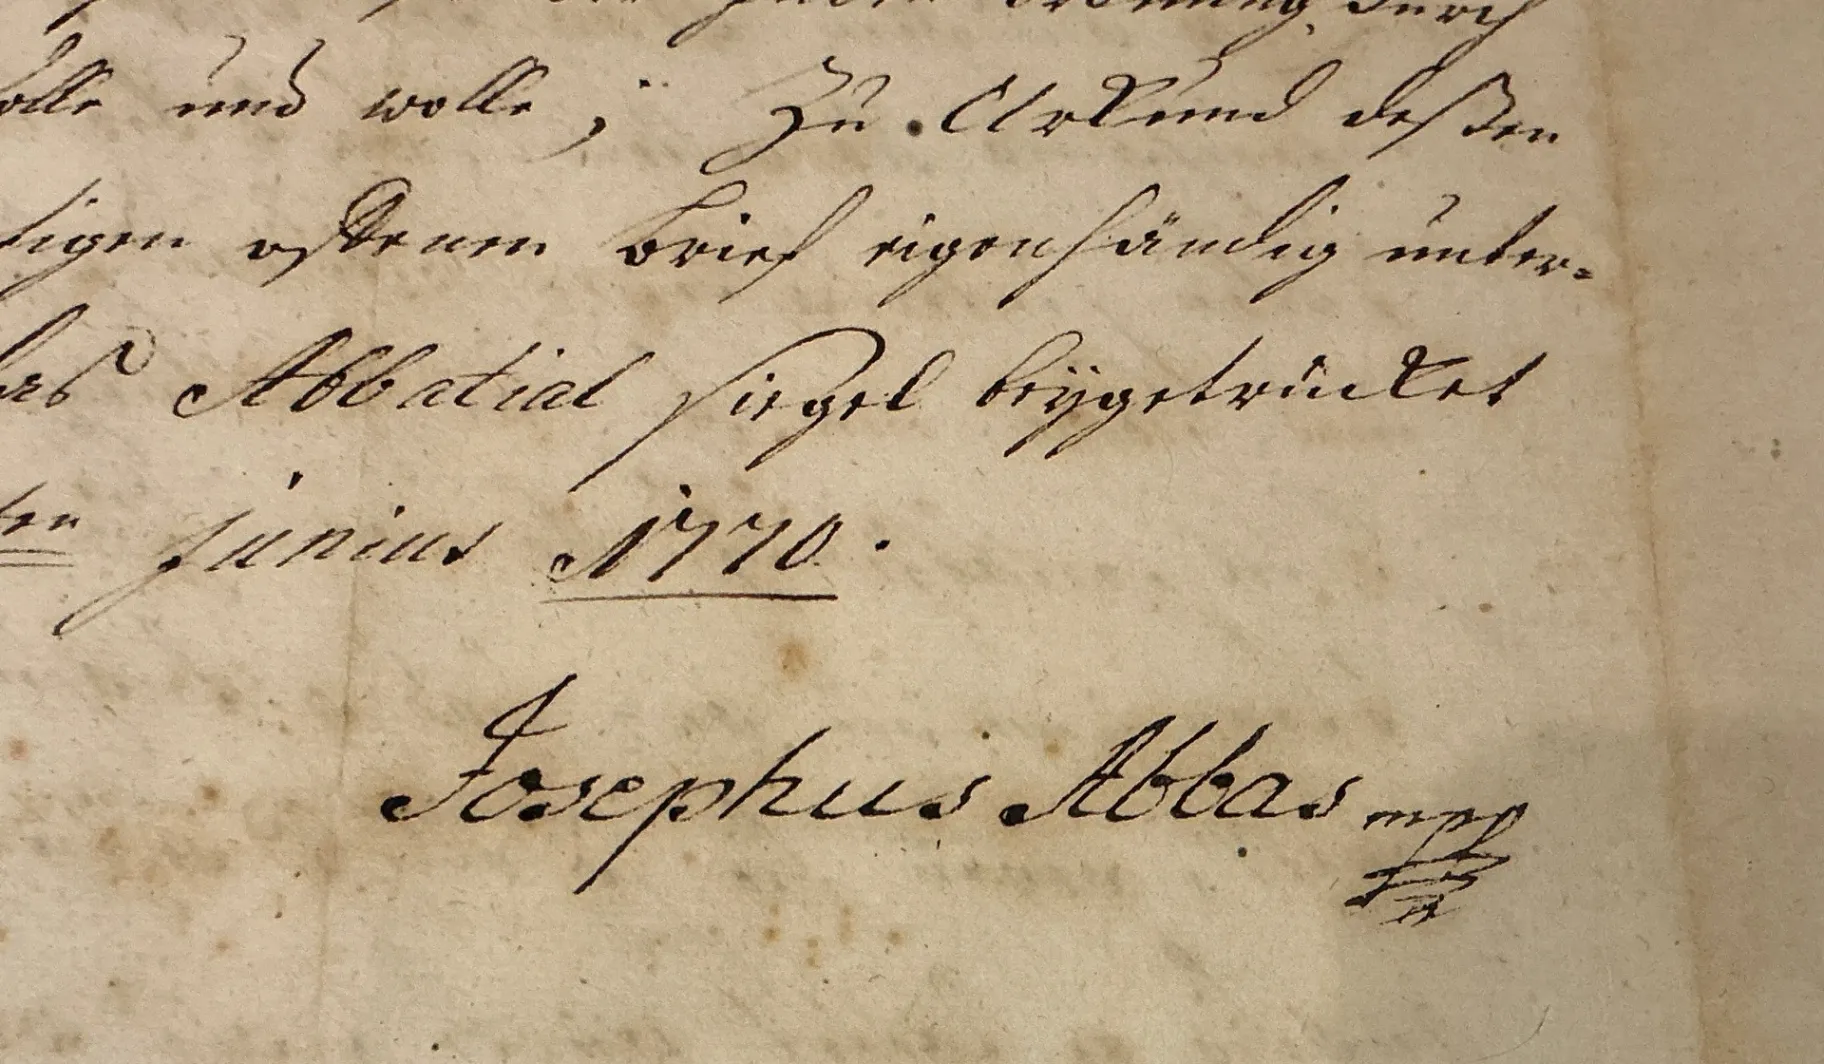 Ordnung durch
solle und wolle; Zu Urkund deßen
tigen offenen brief eigenhändig unter-
Abbatial siegel beygetrücket
ten Junius 1770.
Josephus Abbas mpp